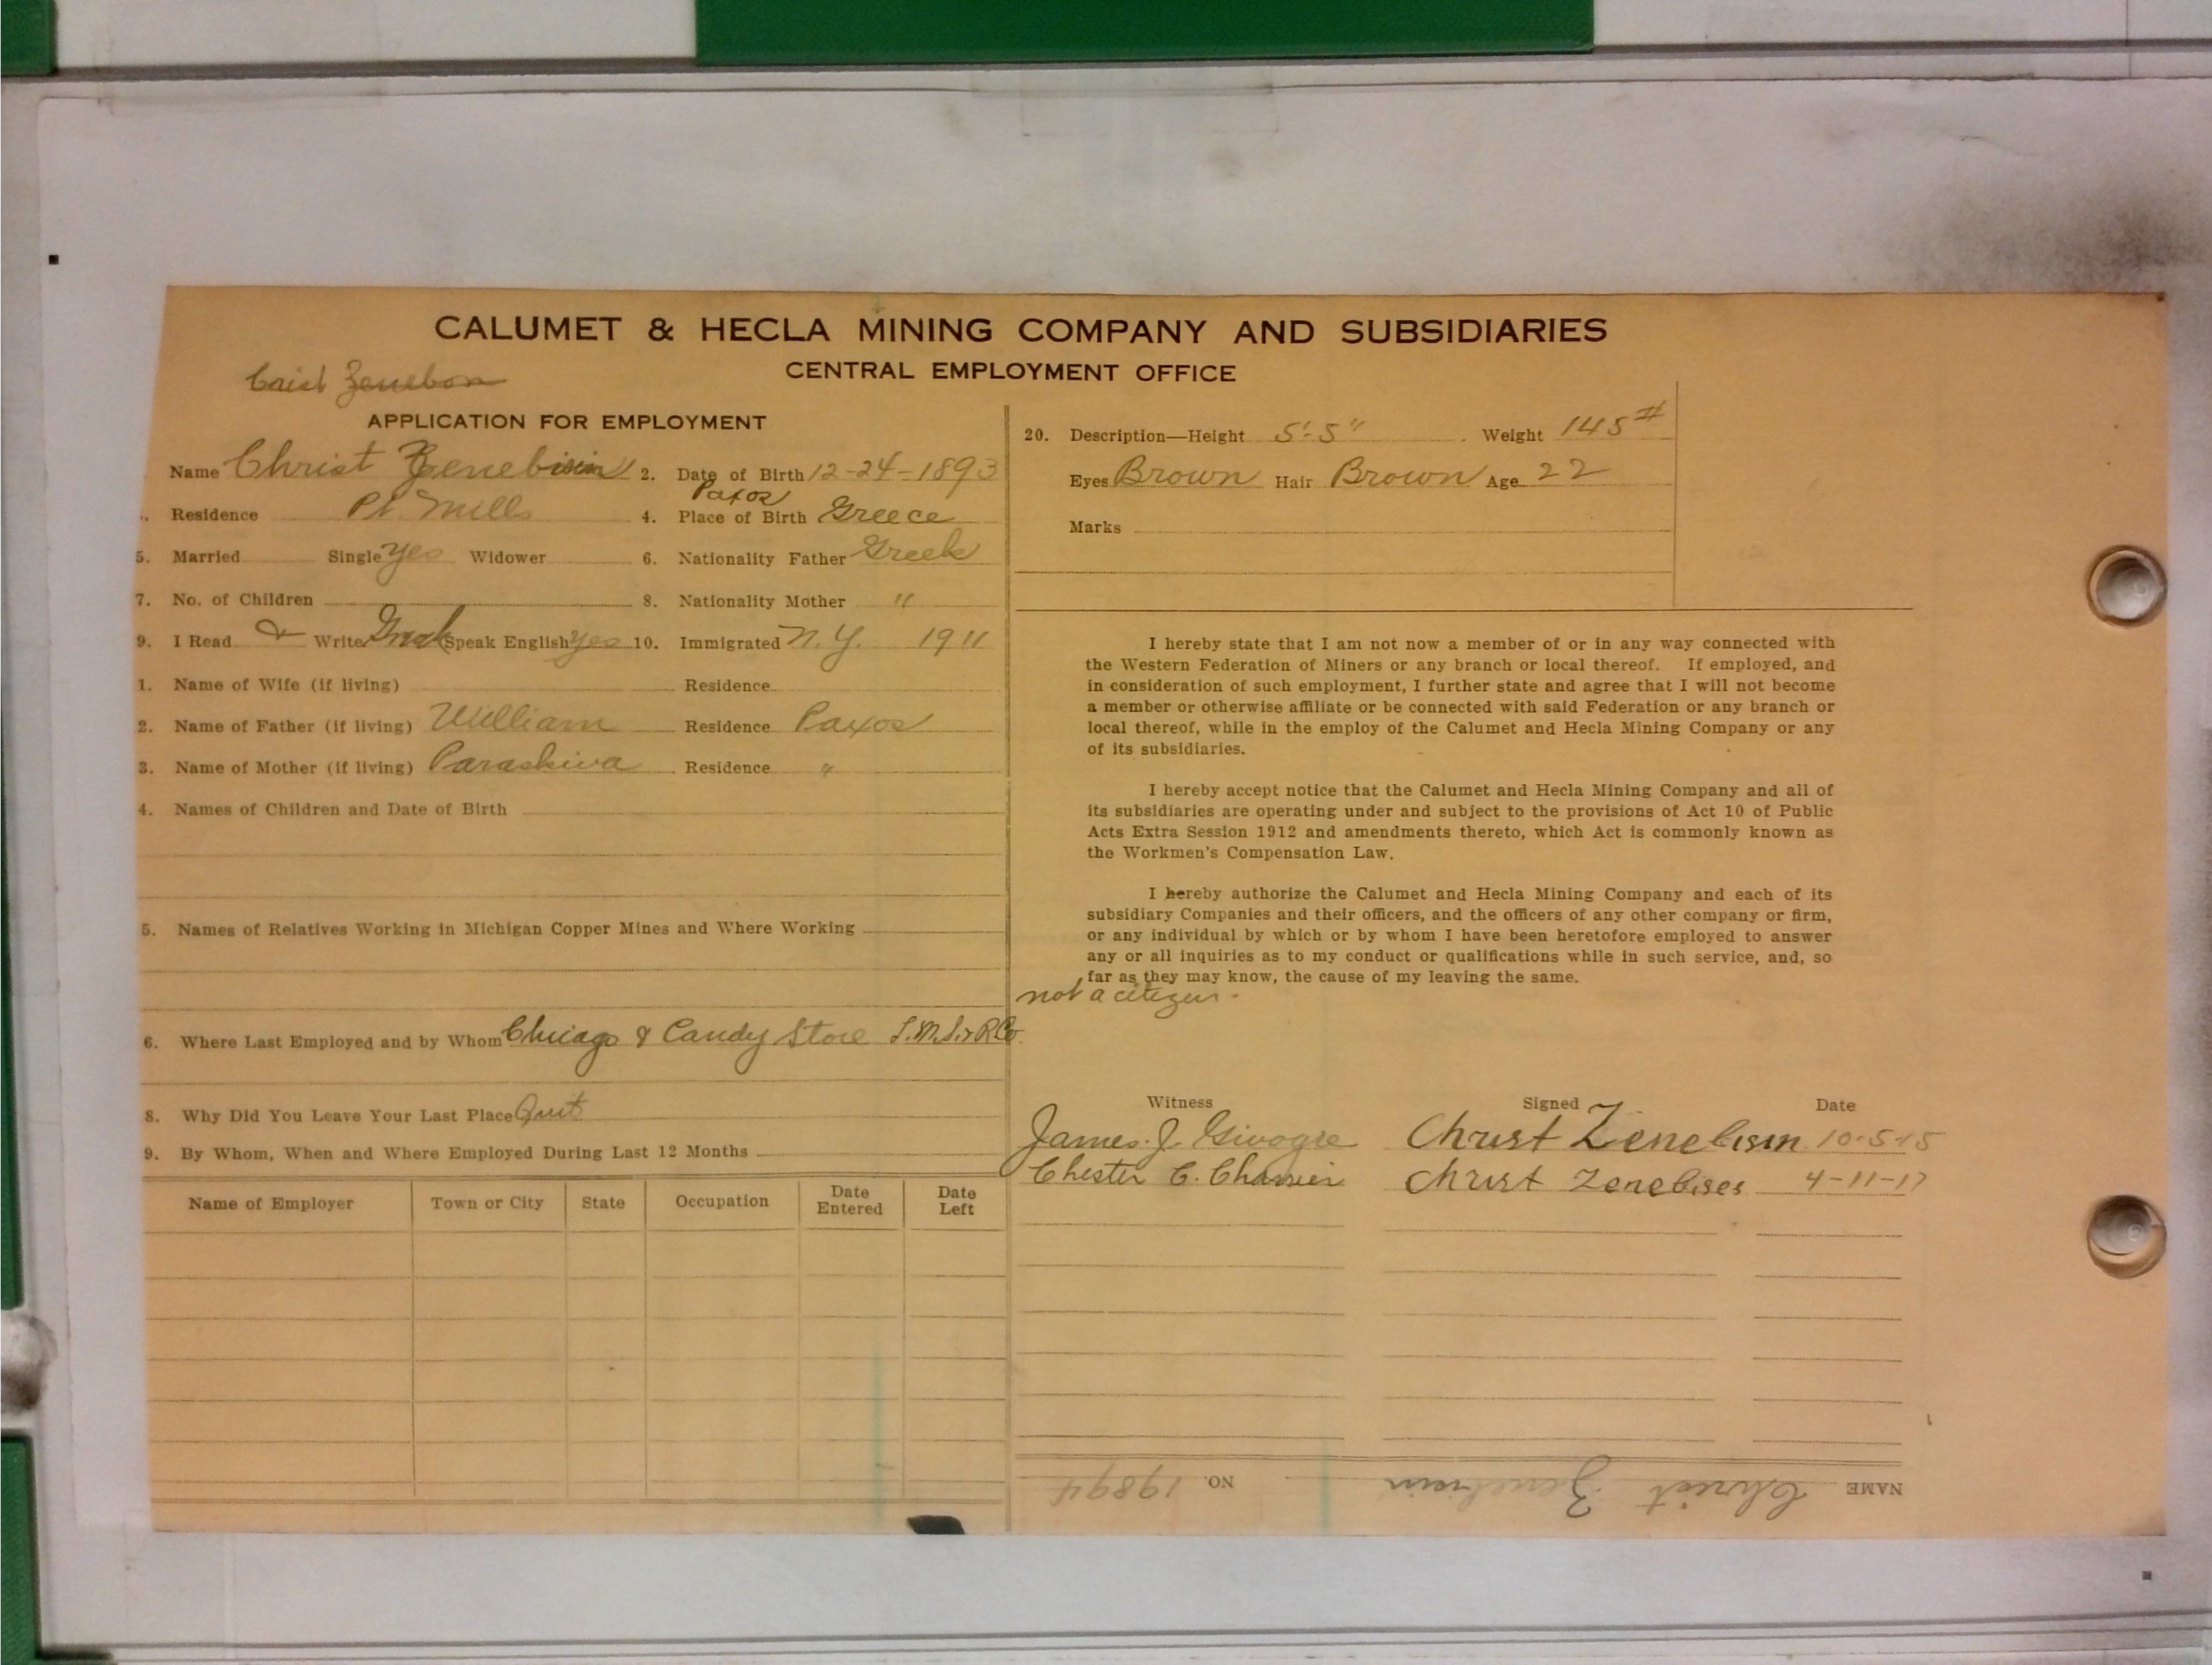 CALUMET & HECLA MINING COMPANY AND SUBSIDIARIES
CENTRAL EMPLOYMENT OFFICE
Crist Zenebon
APPLICATION FOR EMPLOYMENT
Name Christ Zenebisin 2. Date of Birth 12-24-1893
Paxos
Residence Pt. Mills 4. Place of Birth Greece
5. Married Single yes Widower 6. Nationality Father Greek
7. No. of Children 8. Nationality Mother "
9. I Read & Write Greek Speak English yes 10. Immigrated N.Y. 1911
1. Name of Wife (if living) Residence
2. Name of Father (if living) William Residence Paxos
3. Name of Mother (if living) Paraskiva Residence "
4. Names of Children and Date of Birth
5. Names of Relatives Working in Michigan Copper Mines and Where Working
6. Where Last Employed and by Whom Chicago & Candy Store L.M.S.&R.Co.
8. Why Did You Leave Your Last Place Quit
9. By Whom, When and Where Employed During Last 12 Months
Name of Employer Town or City State Occupation Date Entered Date Left
20. Description—Height 5'-5" Weight 145#
Eyes Brown Hair Brown Age 22
Marks
I hereby state that I am not now a member of or in any way connected with
the Western Federation of Miners or any branch or local thereof. If employed, and
in consideration of such employment, I further state and agree that I will not become
a member or otherwise affiliate or be connected with said Federation or any branch or
local thereof, while in the employ of the Calumet and Hecla Mining Company or any
of its subsidiaries.
I hereby accept notice that the Calumet and Hecla Mining Company and all of
its subsidiaries are operating under and subject to the provisions of Act 10 of Public
Acts Extra Session 1912 and amendments thereto, which Act is commonly known as
the Workmen's Compensation Law.
I hereby authorize the Calumet and Hecla Mining Company and each of its
subsidiary Companies and their officers, and the officers of any other company or firm,
or any individual by which or by whom I have been heretofore employed to answer
any or all inquiries as to my conduct or qualifications while in such service, and, so
far as they may know, the cause of my leaving the same.
not a citizen -
Witness Signed Date
James J. Christ Zenebisin 10-5-15
Chester C. Christ Zenebises 4-11-17
NAME Christ Zenebisin NO. 19894